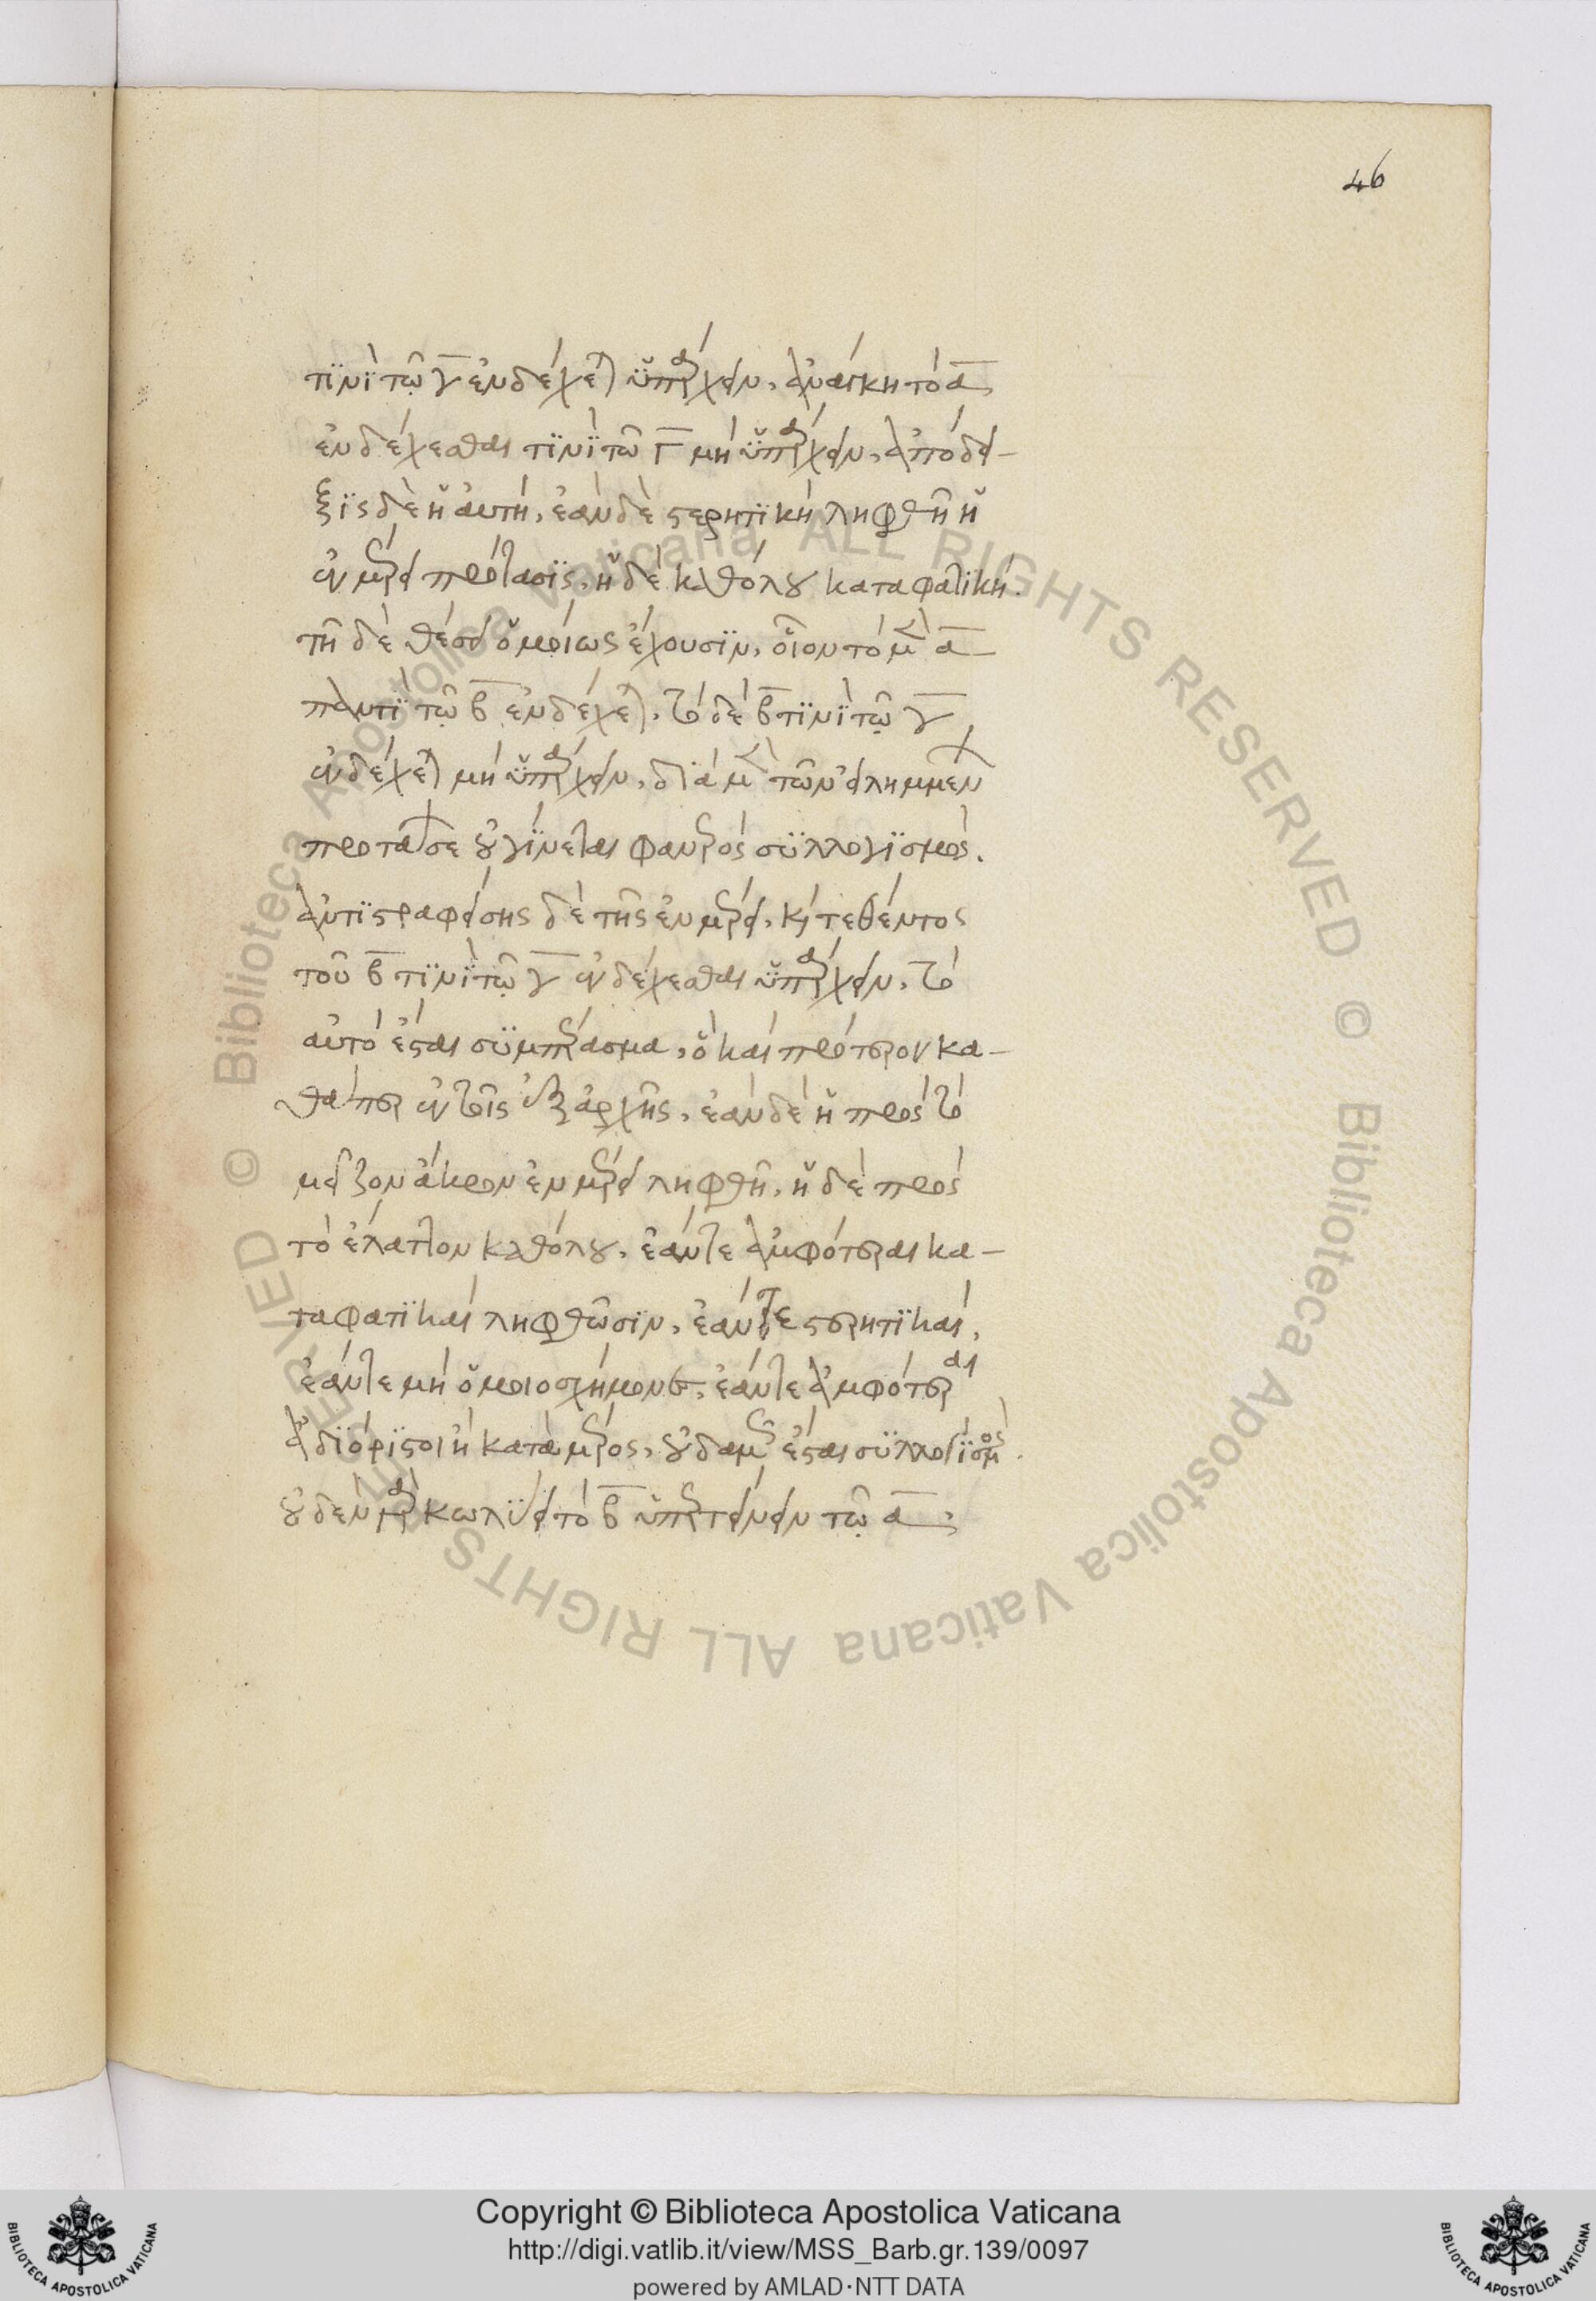 46
τινὶ τῷ γ ἐνδέχεται ὑπάρχειν, ἀνάγκη τὸ α
ἐνδέχεσθαι τινὶ τῶ Γ μὴ ὑπάρχειν, ἀπόδει-
ξις δὲ ἡ αὐτή, ἐὰν δὲ στερητικὴ ληφθῆ ἡ
ἐν μέρει πρότασις, ἡ δὲ καθόλου καταφατική.
τῆ δὲ θέσει ὁμοίως ἔχουσιν, οἷον τὸ μὲν α
παντὶ τῷ β ἐνδέχεται, τὸ δὲ β τινὶ τῷ γ
ἐνδέχεται μὴ ὑπάρχειν, διὰ μὲν τῶν εἰλημμένων
προτάσεων οὐ γίνεται φανερὸς συλλογισμός.
ἀντιστραφείσης δὲ τῆς ἐν μέρει, καὶ τεθέντος
τοῦ β τινὶ τῷ γ ἐνδέχεσθαι ὑπάρχειν, τὸ
αὐτὸ ἔσται συμπέρασμα, ὃ καὶ πρότερον κα-
θάπερ ἐν τοῖς ἐξ ἀρχῆς, ἐὰν δὲ ἡ πρὸς τὸ
μεῖζον ἄκρον ἐν μέρει ληφθῆ, ἡ δὲ πρὸς
τὸ ἔλαττον καθόλου, ἐάν τε ἀμφότεραι κα-
ταφατικαὶ ληφθῶσιν, ἐάν τε στερητικαί,
ἐάν τε μὴ ὁμοιοσχήμονες, ἐάν τε ἀμφότεραι
ἀδιόριστοι ἢ κατὰ μέρος, οὐδαμῶς ἔσται συλλογισμός.
οὐδὲν γὰρ κωλύει τὸ β ὑπερτείνειν τῷ α,
Copyright © Biblioteca Apostolica Vaticana
http://digi.vatlib.it/view/MSS_Barb.gr.139/0097
powered by AMLAD·NTT DATA